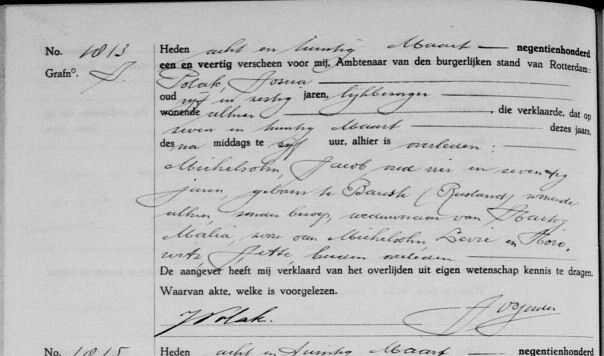 No. 1813 Heden acht en twintig Maart negentienhonderd
Grafn°. een en veertig verscheen voor mij, Ambtenaar van den burgerlijken stand van Rotterdam:
Polak, Josua
oud vijf en zestig jaren, lijkbezorger
wonende alhier, die verklaarde, dat op
zeven en twintig Maart dezes jaars,
des na middags te vijf uur, alhier is overleden:
Michelsohn, Jacob oud vier en zeventig
jaren, geboren te Bausk (Rusland) wonende
alhier, zonder beroep, weduwnaar van
Malia, zoon van Michelsohn, Levie en
Jette beiden overleden
De aangever heeft mij verklaard van het overlijden uit eigen wetenschap kennis te dragen.
Waarvan akte, welke is voorgelezen.
J Polak.
No. 1815 Heden acht en twintig Maart negentienhonderd